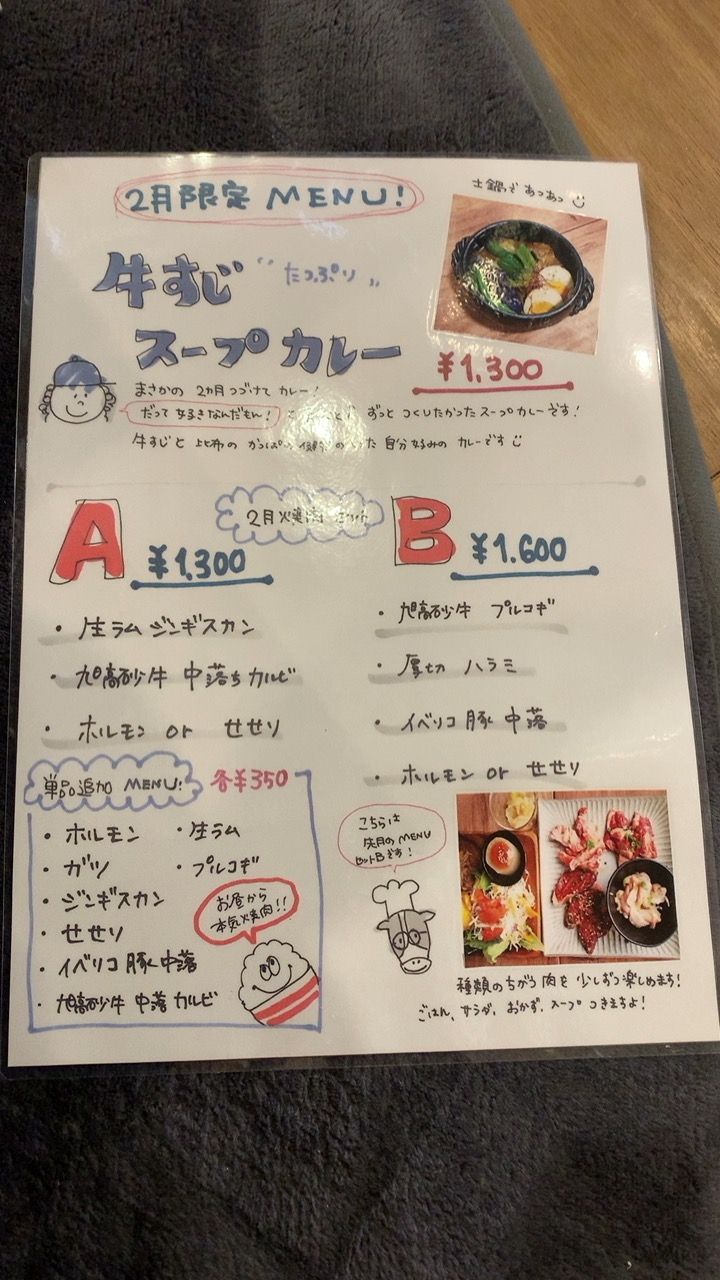 2月限定 MENU!
土鍋で あつあつ
牛すじ "たっぷり"
スープカレー
¥1,300
まさかの 2ヵ月つづけて カレー!
だって 好きなんだもん! ずっと つくりたかった スープカレーです!
牛すじと 比布の かっぱ の 自分好みの カレーです
2月焼肉セット
A ¥1,300
・生ラム ジンギスカン
・旭高砂牛 中落ちカルビ
・ホルモン or せせり
B ¥1.600
・旭高砂牛 プルコギ
・厚切 ハラミ
・イベリコ豚 中落
・ホルモン or せせり
単品追加 MENU! 各¥350
・ホルモン ・生ラム
・ガツ ・プルコギ
・ジンギスカン
・せせり
・イベリコ豚 中落
・旭高砂牛 中落カルビ
お昼から
本気焼肉!!
こちらは
先月の MENU
セットBです!
種類のちがう肉を 少しずつ楽しめます!
ごはん、サラダ、おかず、スープ つきますよ!